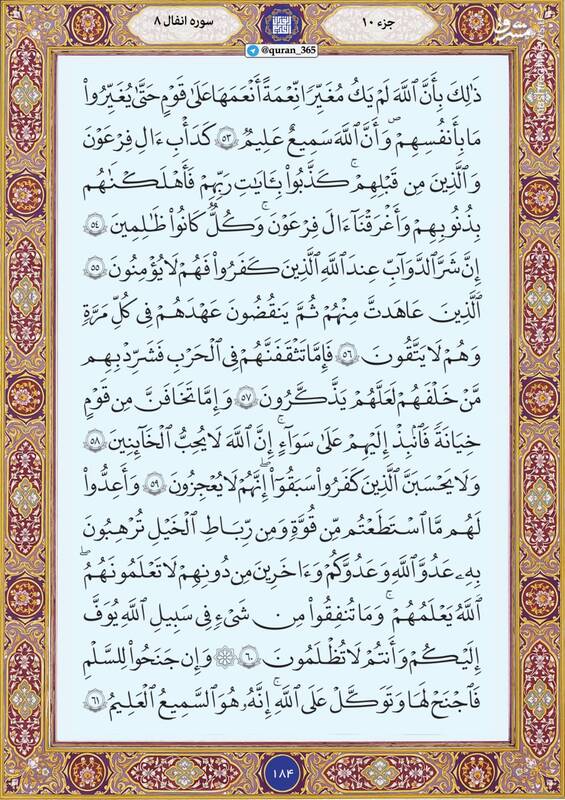 جزء ۱۰
سوره انفال ۸
@quran_365
مشرق
ذَٰلِكَ بِأَنَّ ٱللَّهَ لَمْ يَكُ مُغَيِّرًا نِّعْمَةً أَنْعَمَهَا عَلَىٰ قَوْمٍ حَتَّىٰ يُغَيِّرُوا۟
مَا بِأَنفُسِهِمْ ۙ وَأَنَّ ٱللَّهَ سَمِيعٌ عَلِيمٌ ۝٥٣ كَدَأْبِ ءَالِ فِرْعَوْنَ
وَٱلَّذِينَ مِن قَبْلِهِمْ ۚ كَذَّبُوا۟ بِـَٔايَـٰتِ رَبِّهِمْ فَأَهْلَكْنَـٰهُم
بِذُنُوبِهِمْ وَأَغْرَقْنَآ ءَالَ فِرْعَوْنَ ۚ وَكُلٌّ كَانُوا۟ ظَـٰلِمِينَ ۝٥٤
إِنَّ شَرَّ ٱلدَّوَآبِّ عِندَ ٱللَّهِ ٱلَّذِينَ كَفَرُوا۟ فَهُمْ لَا يُؤْمِنُونَ ۝٥٥
ٱلَّذِينَ عَـٰهَدتَّ مِنْهُمْ ثُمَّ يَنقُضُونَ عَهْدَهُمْ فِى كُلِّ مَرَّةٍ
وَهُمْ لَا يَتَّقُونَ ۝٥٦ فَإِمَّا تَثْقَفَنَّهُمْ فِى ٱلْحَرْبِ فَشَرِّدْ بِهِم
مَّنْ خَلْفَهُمْ لَعَلَّهُمْ يَذَّكَّرُونَ ۝٥٧ وَإِمَّا تَخَافَنَّ مِن قَوْمٍ
خِيَانَةً فَٱنۢبِذْ إِلَيْهِمْ عَلَىٰ سَوَآءٍ ۚ إِنَّ ٱللَّهَ لَا يُحِبُّ ٱلْخَآئِنِينَ ۝٥٨
وَلَا يَحْسَبَنَّ ٱلَّذِينَ كَفَرُوا۟ سَبَقُوٓا۟ ۚ إِنَّهُمْ لَا يُعْجِزُونَ ۝٥٩ وَأَعِدُّوا۟
لَهُم مَّا ٱسْتَطَعْتُم مِّن قُوَّةٍ وَمِن رِّبَاطِ ٱلْخَيْلِ تُرْهِبُونَ
بِهِۦ عَدُوَّ ٱللَّهِ وَعَدُوَّكُمْ وَءَاخَرِينَ مِن دُونِهِمْ لَا تَعْلَمُونَهُمُ
ٱللَّهُ يَعْلَمُهُمْ ۚ وَمَا تُنفِقُوا۟ مِن شَىْءٍ فِى سَبِيلِ ٱللَّهِ يُوَفَّ
إِلَيْكُمْ وَأَنتُمْ لَا تُظْلَمُونَ ۝٦٠ ۞ وَإِن جَنَحُوا۟ لِلسَّلْمِ
فَٱجْنَحْ لَهَا وَتَوَكَّلْ عَلَى ٱللَّهِ ۚ إِنَّهُۥ هُوَ ٱلسَّمِيعُ ٱلْعَلِيمُ ۝٦١
۱۸۴